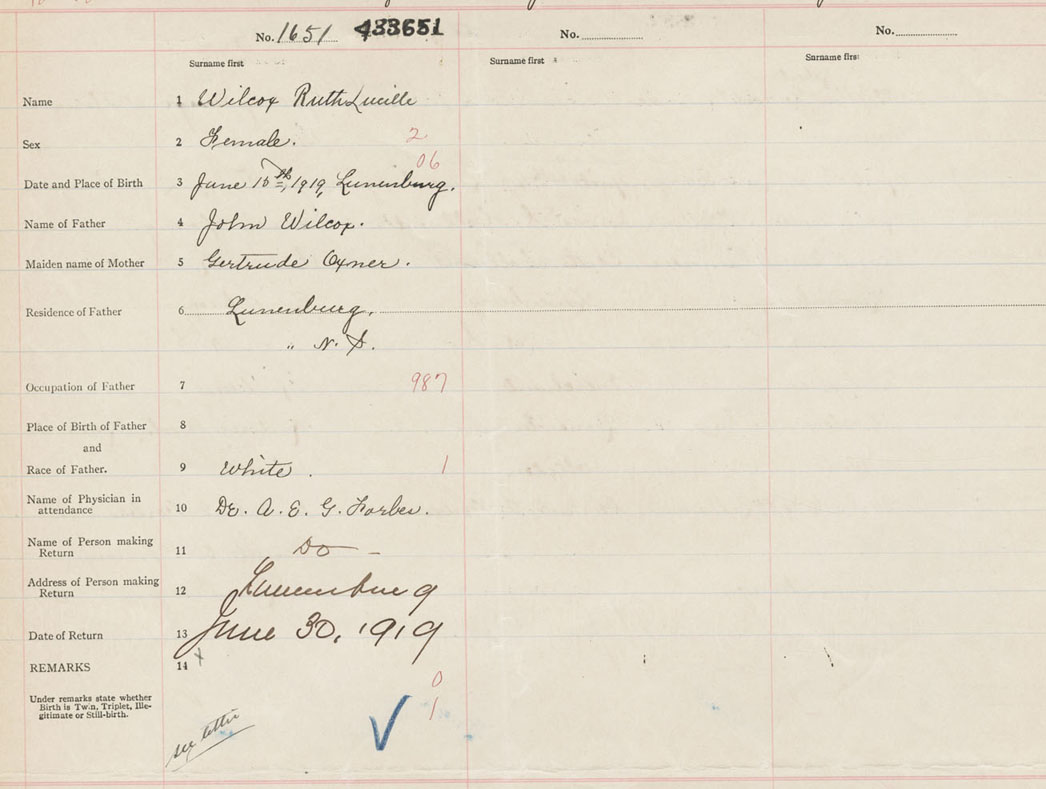 No. 1651 433651 No. No.
Surname first Surname first Surname first
Name 1 Wilcox Ruth Lucille
Sex 2 Female. 2
06
Date and Place of Birth 3 June 15th, 1919, Lunenburg.
Name of Father 4 John Wilcox.
Maiden name of Mother 5 Gertrude Oxner.
Residence of Father 6 Lunenburg.
" N. S.
Occupation of Father 7 987
Place of Birth of Father 8
and
Race of Father. 9 White. 1
Name of Physician in
attendance 10 Dr. A. E. G. Forbes.
Name of Person making
Return 11 Do –
Address of Person making
Return 12 Lunenburg
Date of Return 13 June 30, 1919
REMARKS 14 x
0
Under remarks state whether
Birth is Twin, Triplet, Ille-
gitimate or Still-birth. 1
see letter